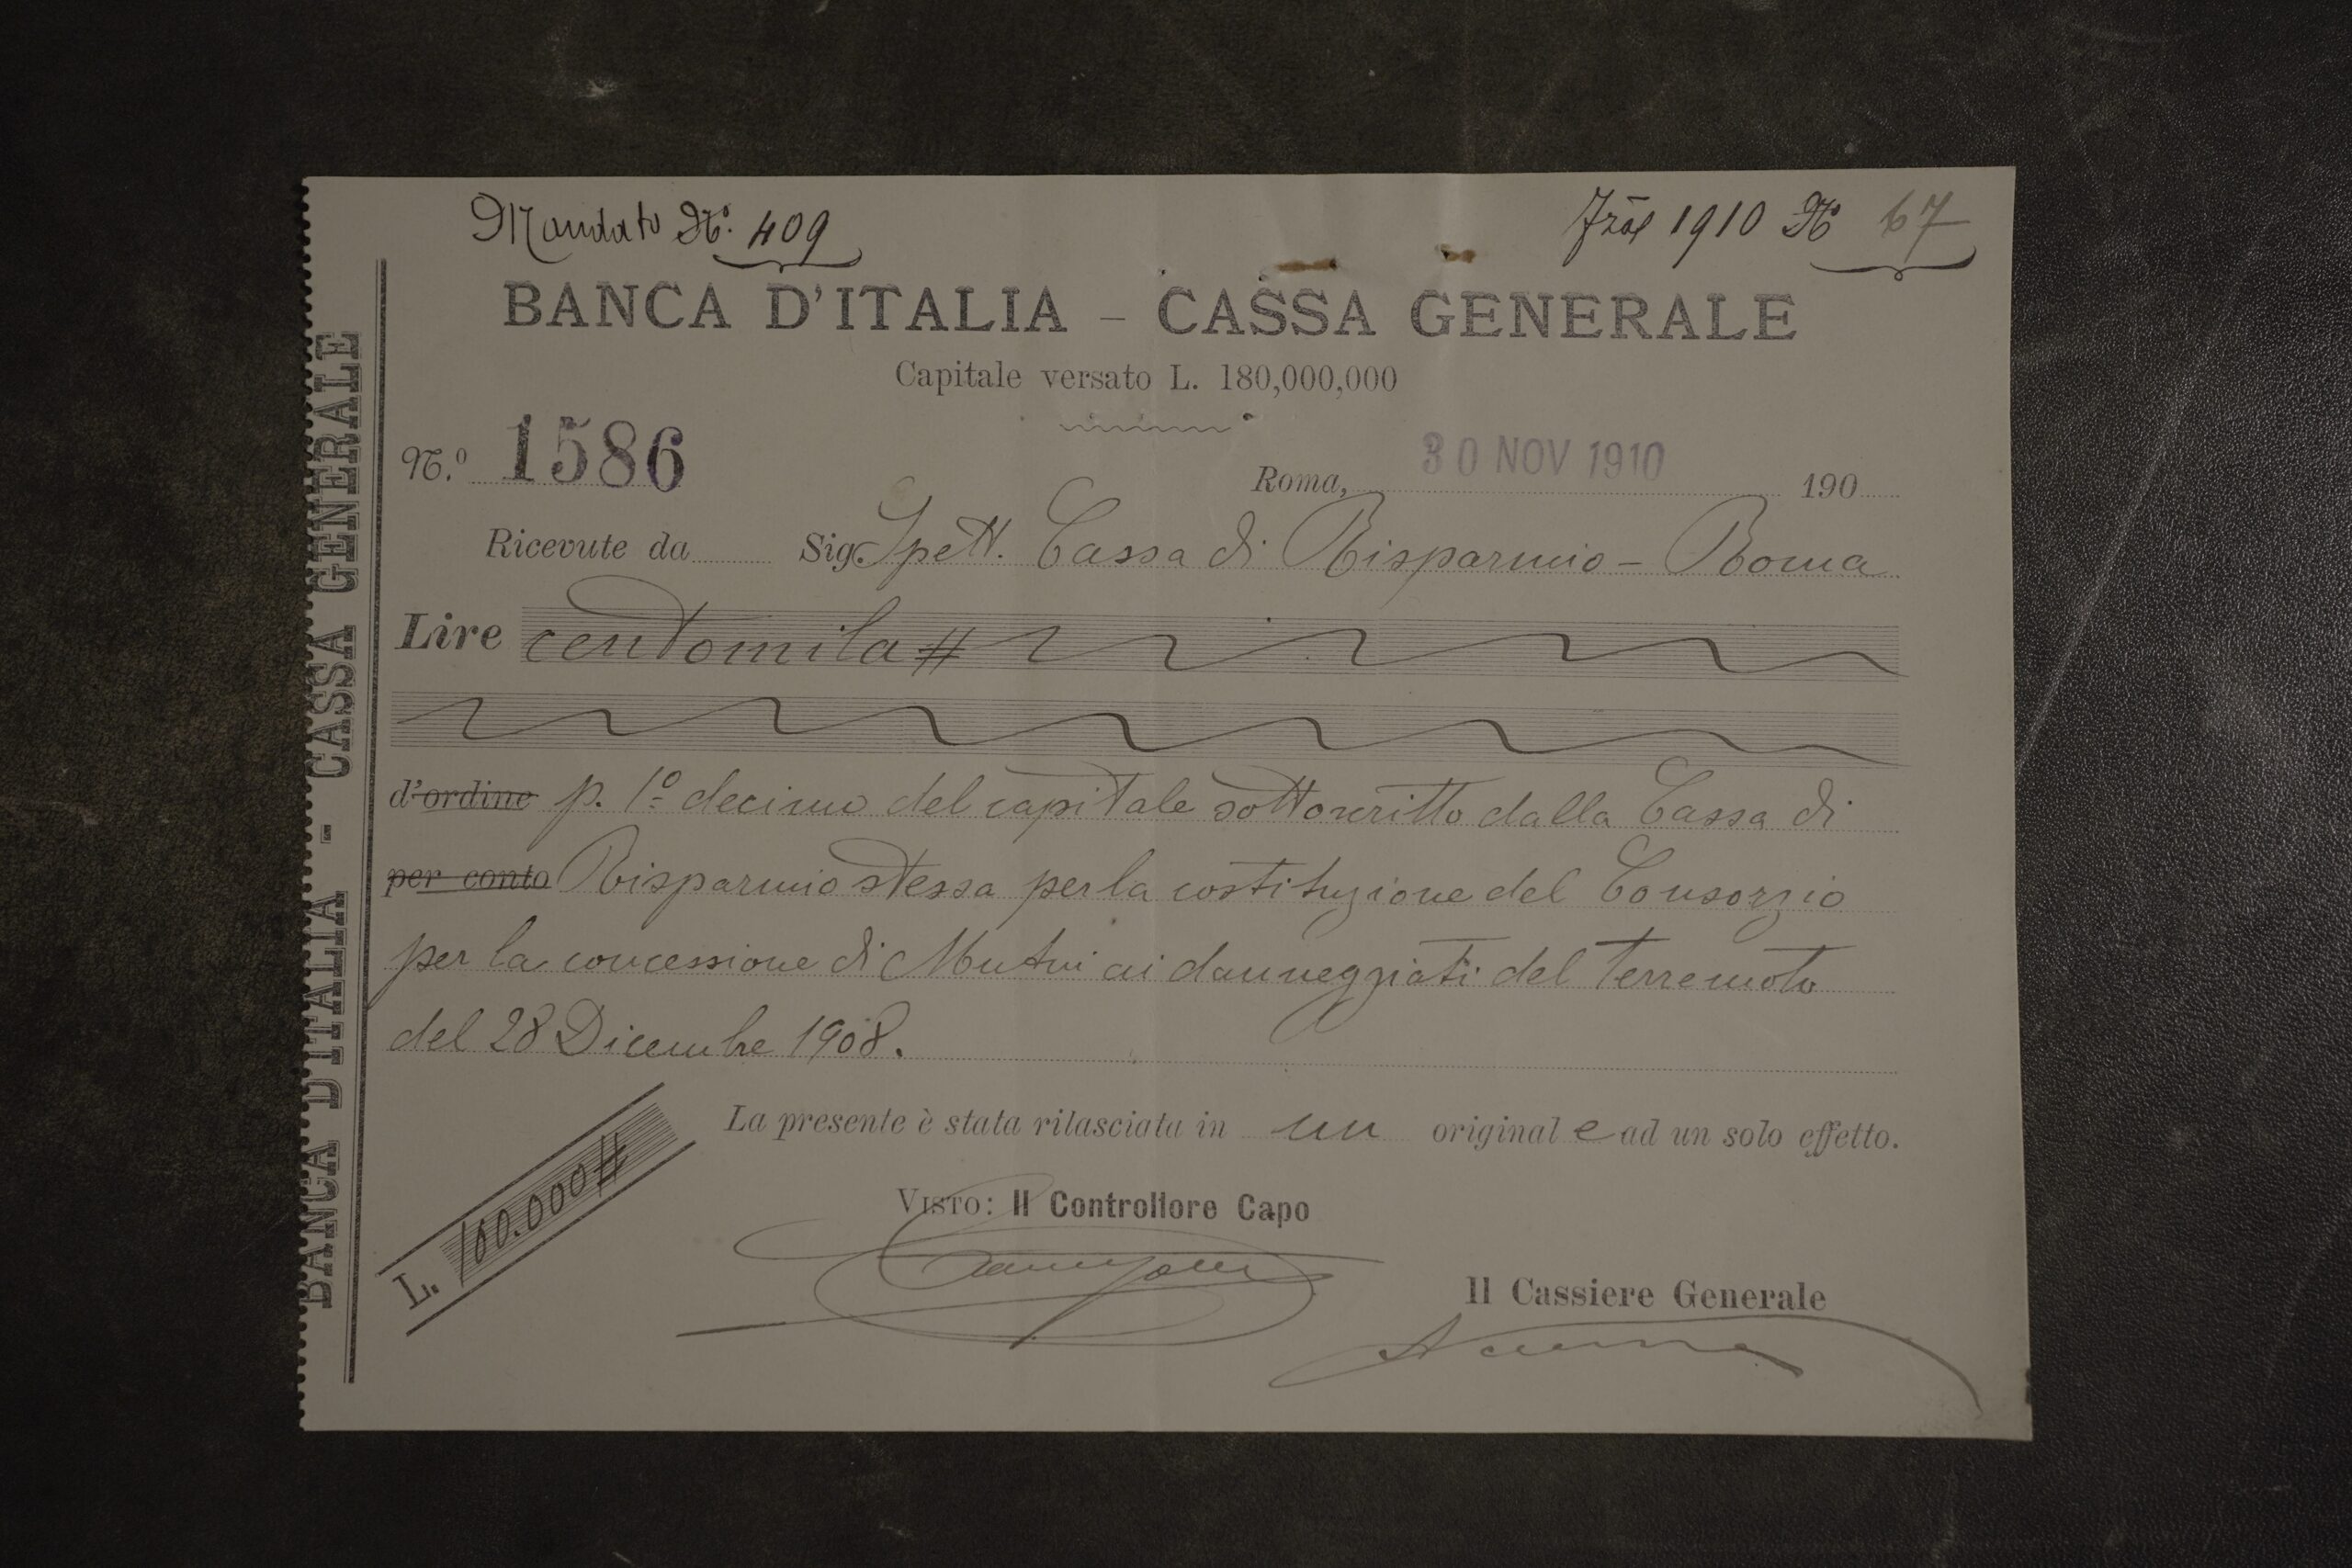 Mandato No. 409
1910 No 67
BANCA D'ITALIA – CASSA GENERALE
Capitale versato L. 180,000,000
N.o 1586
Roma, 30 NOV 1910 190
Ricevute da Sig. Spett. Cassa di Risparmio – Roma
Lire centomila #
d'ordine p. 1o decimo del capitale sottoscritto dalla Cassa di
per conto Risparmio stessa per la costituzione del Consorzio
per la concessione di Mutui ai danneggiati del terremoto
del 28 Dicembre 1908.
La presente è stata rilasciata in un originale ad un solo effetto.
L. 100.000 #
VISTO: Il Controllore Capo
Il Cassiere Generale
BANCA D'ITALIA - CASSA GENERALE